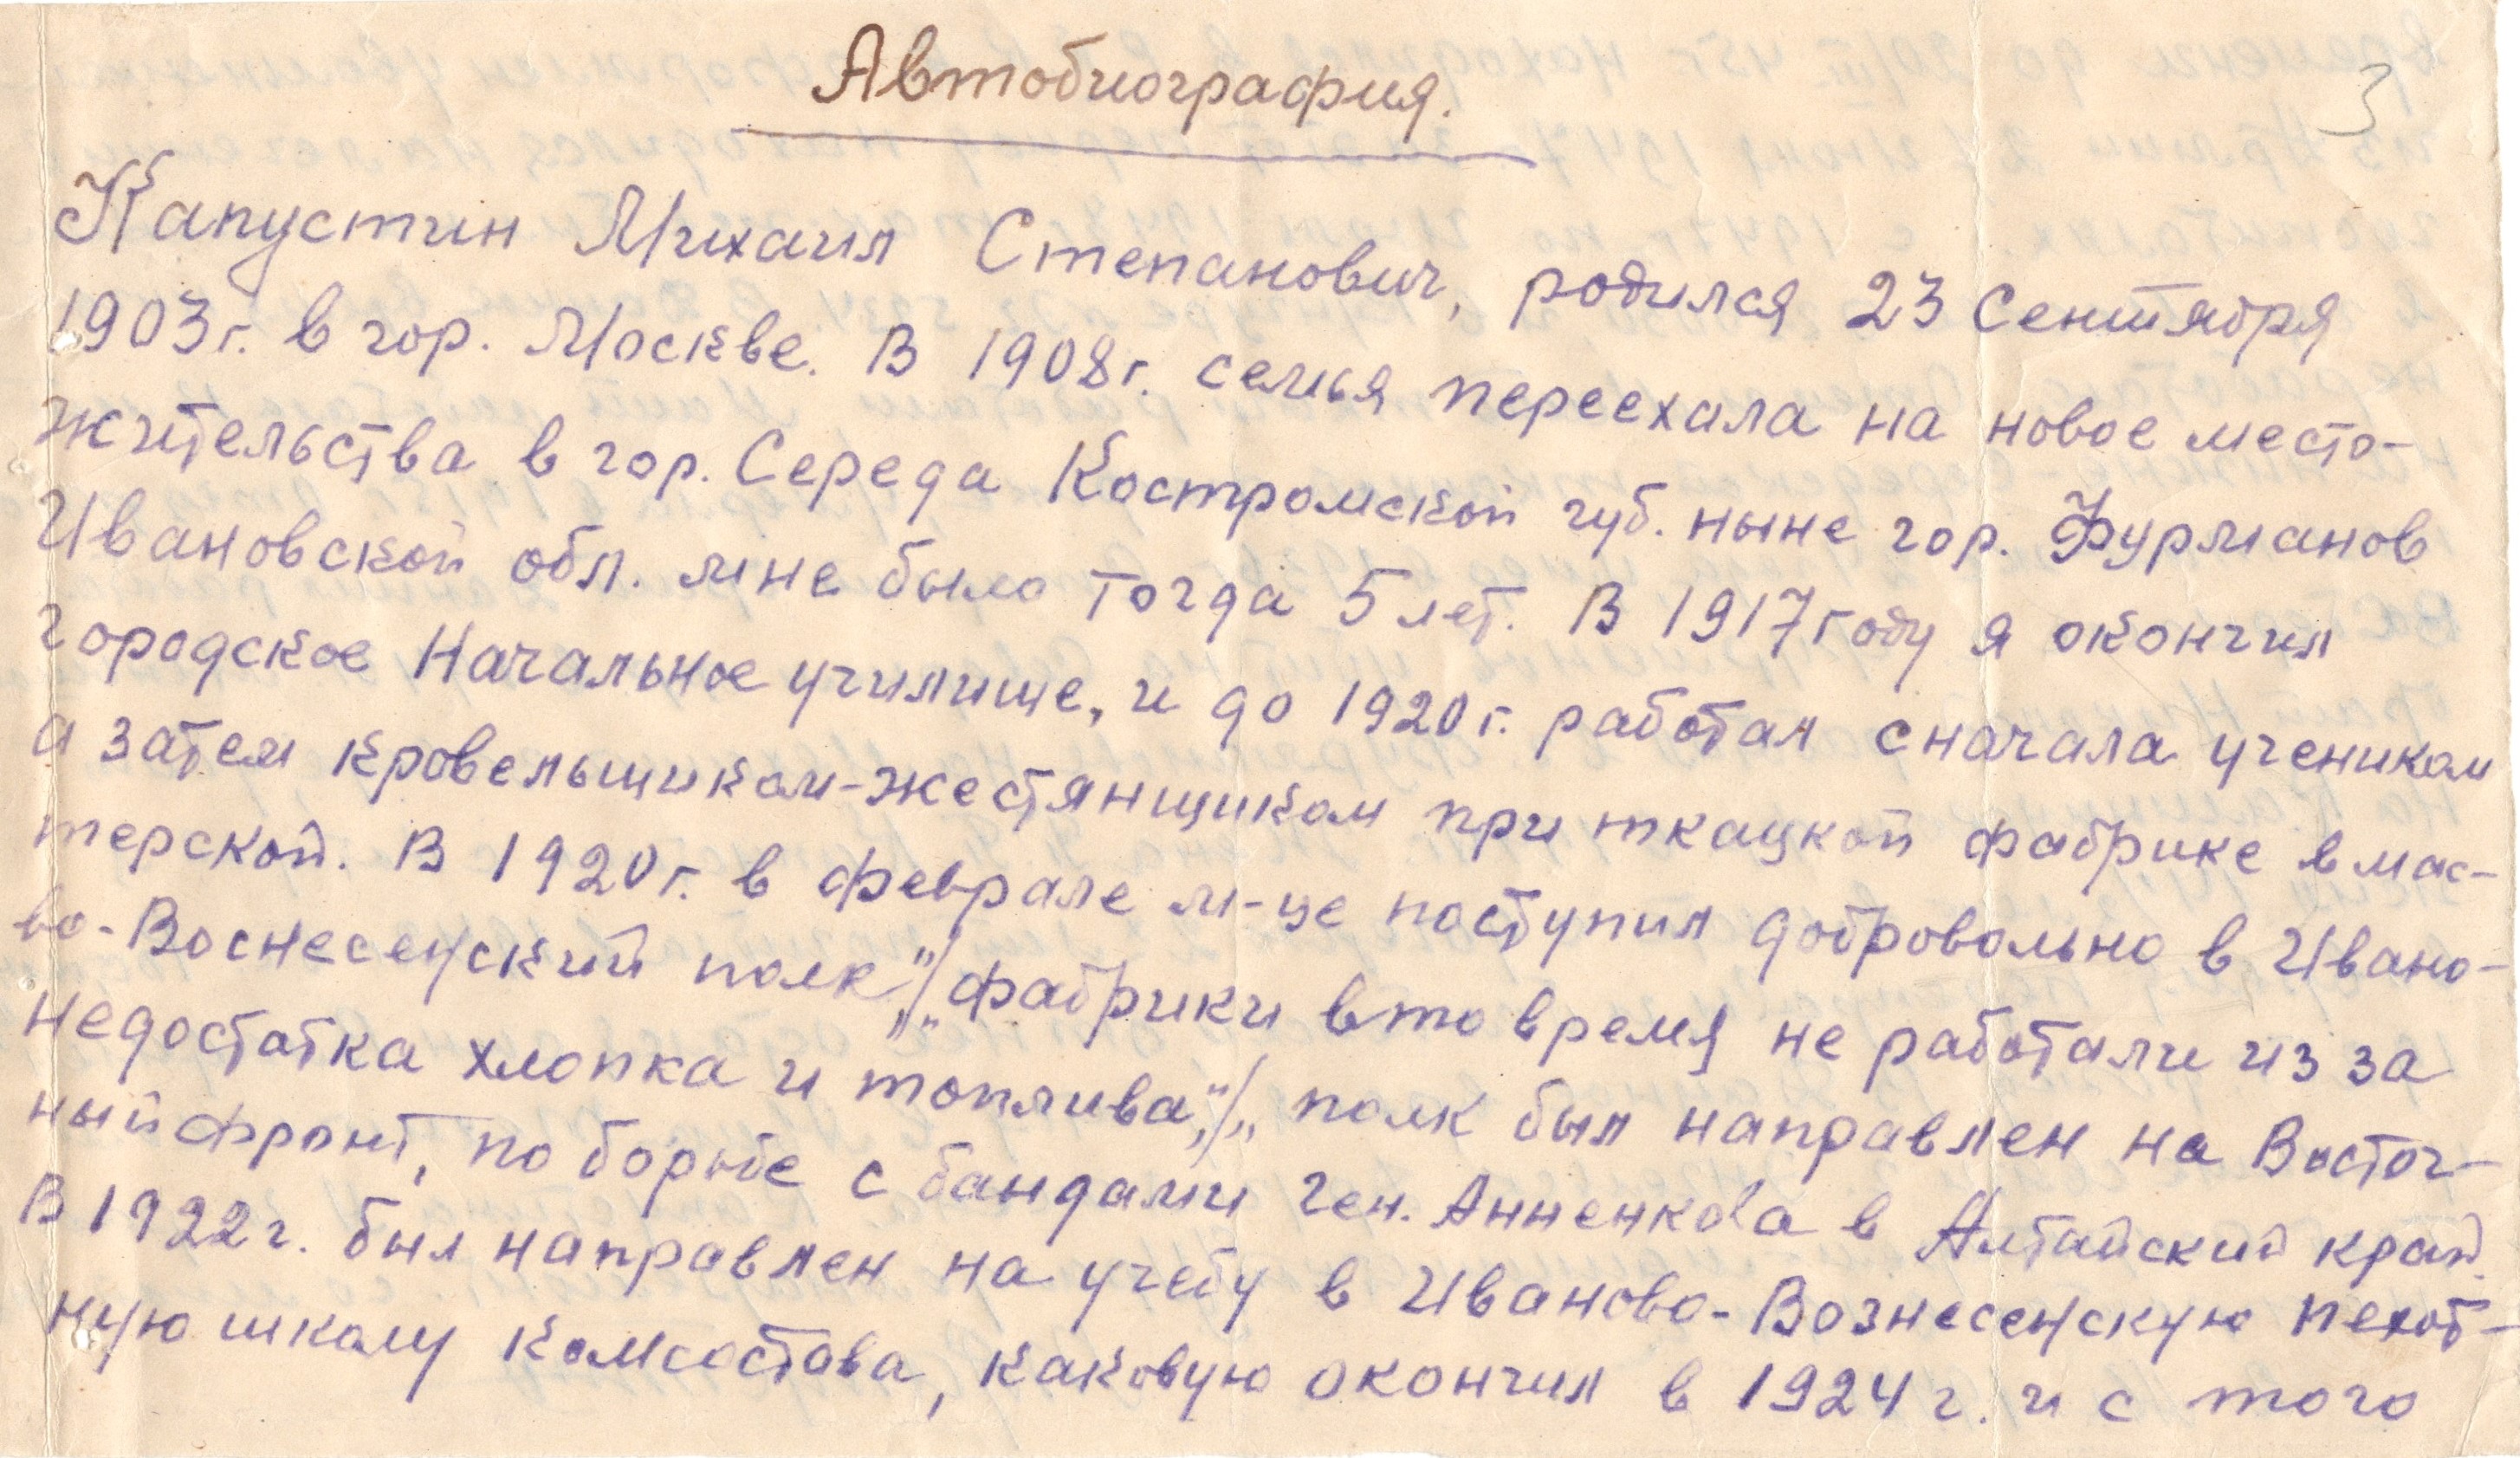 Автобиография.
3
Капустин Михаил Степанович, родился 23 Сентября
1903г. в гор. Москве. В 1908г. семья переехала на новое место-
жительства в гор. Середа Костромской губ. ныне гор. Фурманов
Ивановской обл. мне было тогда 5 лет. В 1917 году я окончил
городское Начальное училище, и до 1920г. работал сначала учеником
а затем кровельщиком-жестянщиком при ткацкой фабрике в мас-
терской. В 1920г. в феврале м-це поступил добровольно в Ивано-
во-Воснесенский полк „/„ фабрики в то время не работали из за
недостатка хлопка и топлива „/„ полк был направлен на Восточ-
ный фронт, по борьбе с бандами ген. Анненкова в Алтайский край.
В 1922г. был направлен на учебу в Иваново-Вознесенскую пехот-
ную школу комсостава, каковую окончил в 1924 г. и с того